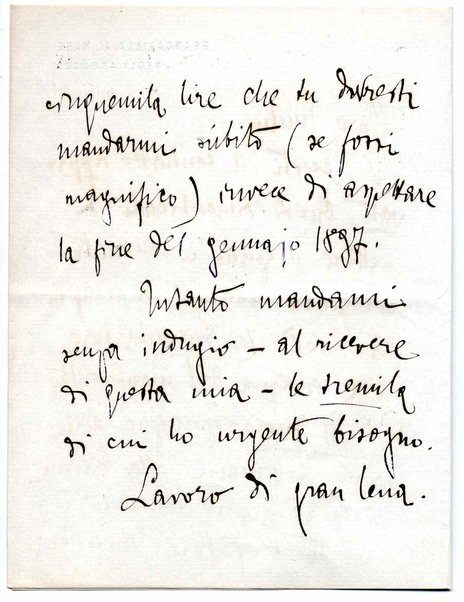 cinquemila lire che tu dovresti
mandarmi sùbito (se fossi
magnifico) invece di aspettare
la fine del gennajo 1897.
Intanto mandami
senza indugio – al ricevere
di questa mia – le tremila
di cui ho urgente bisogno.
Lavoro di gran lena.